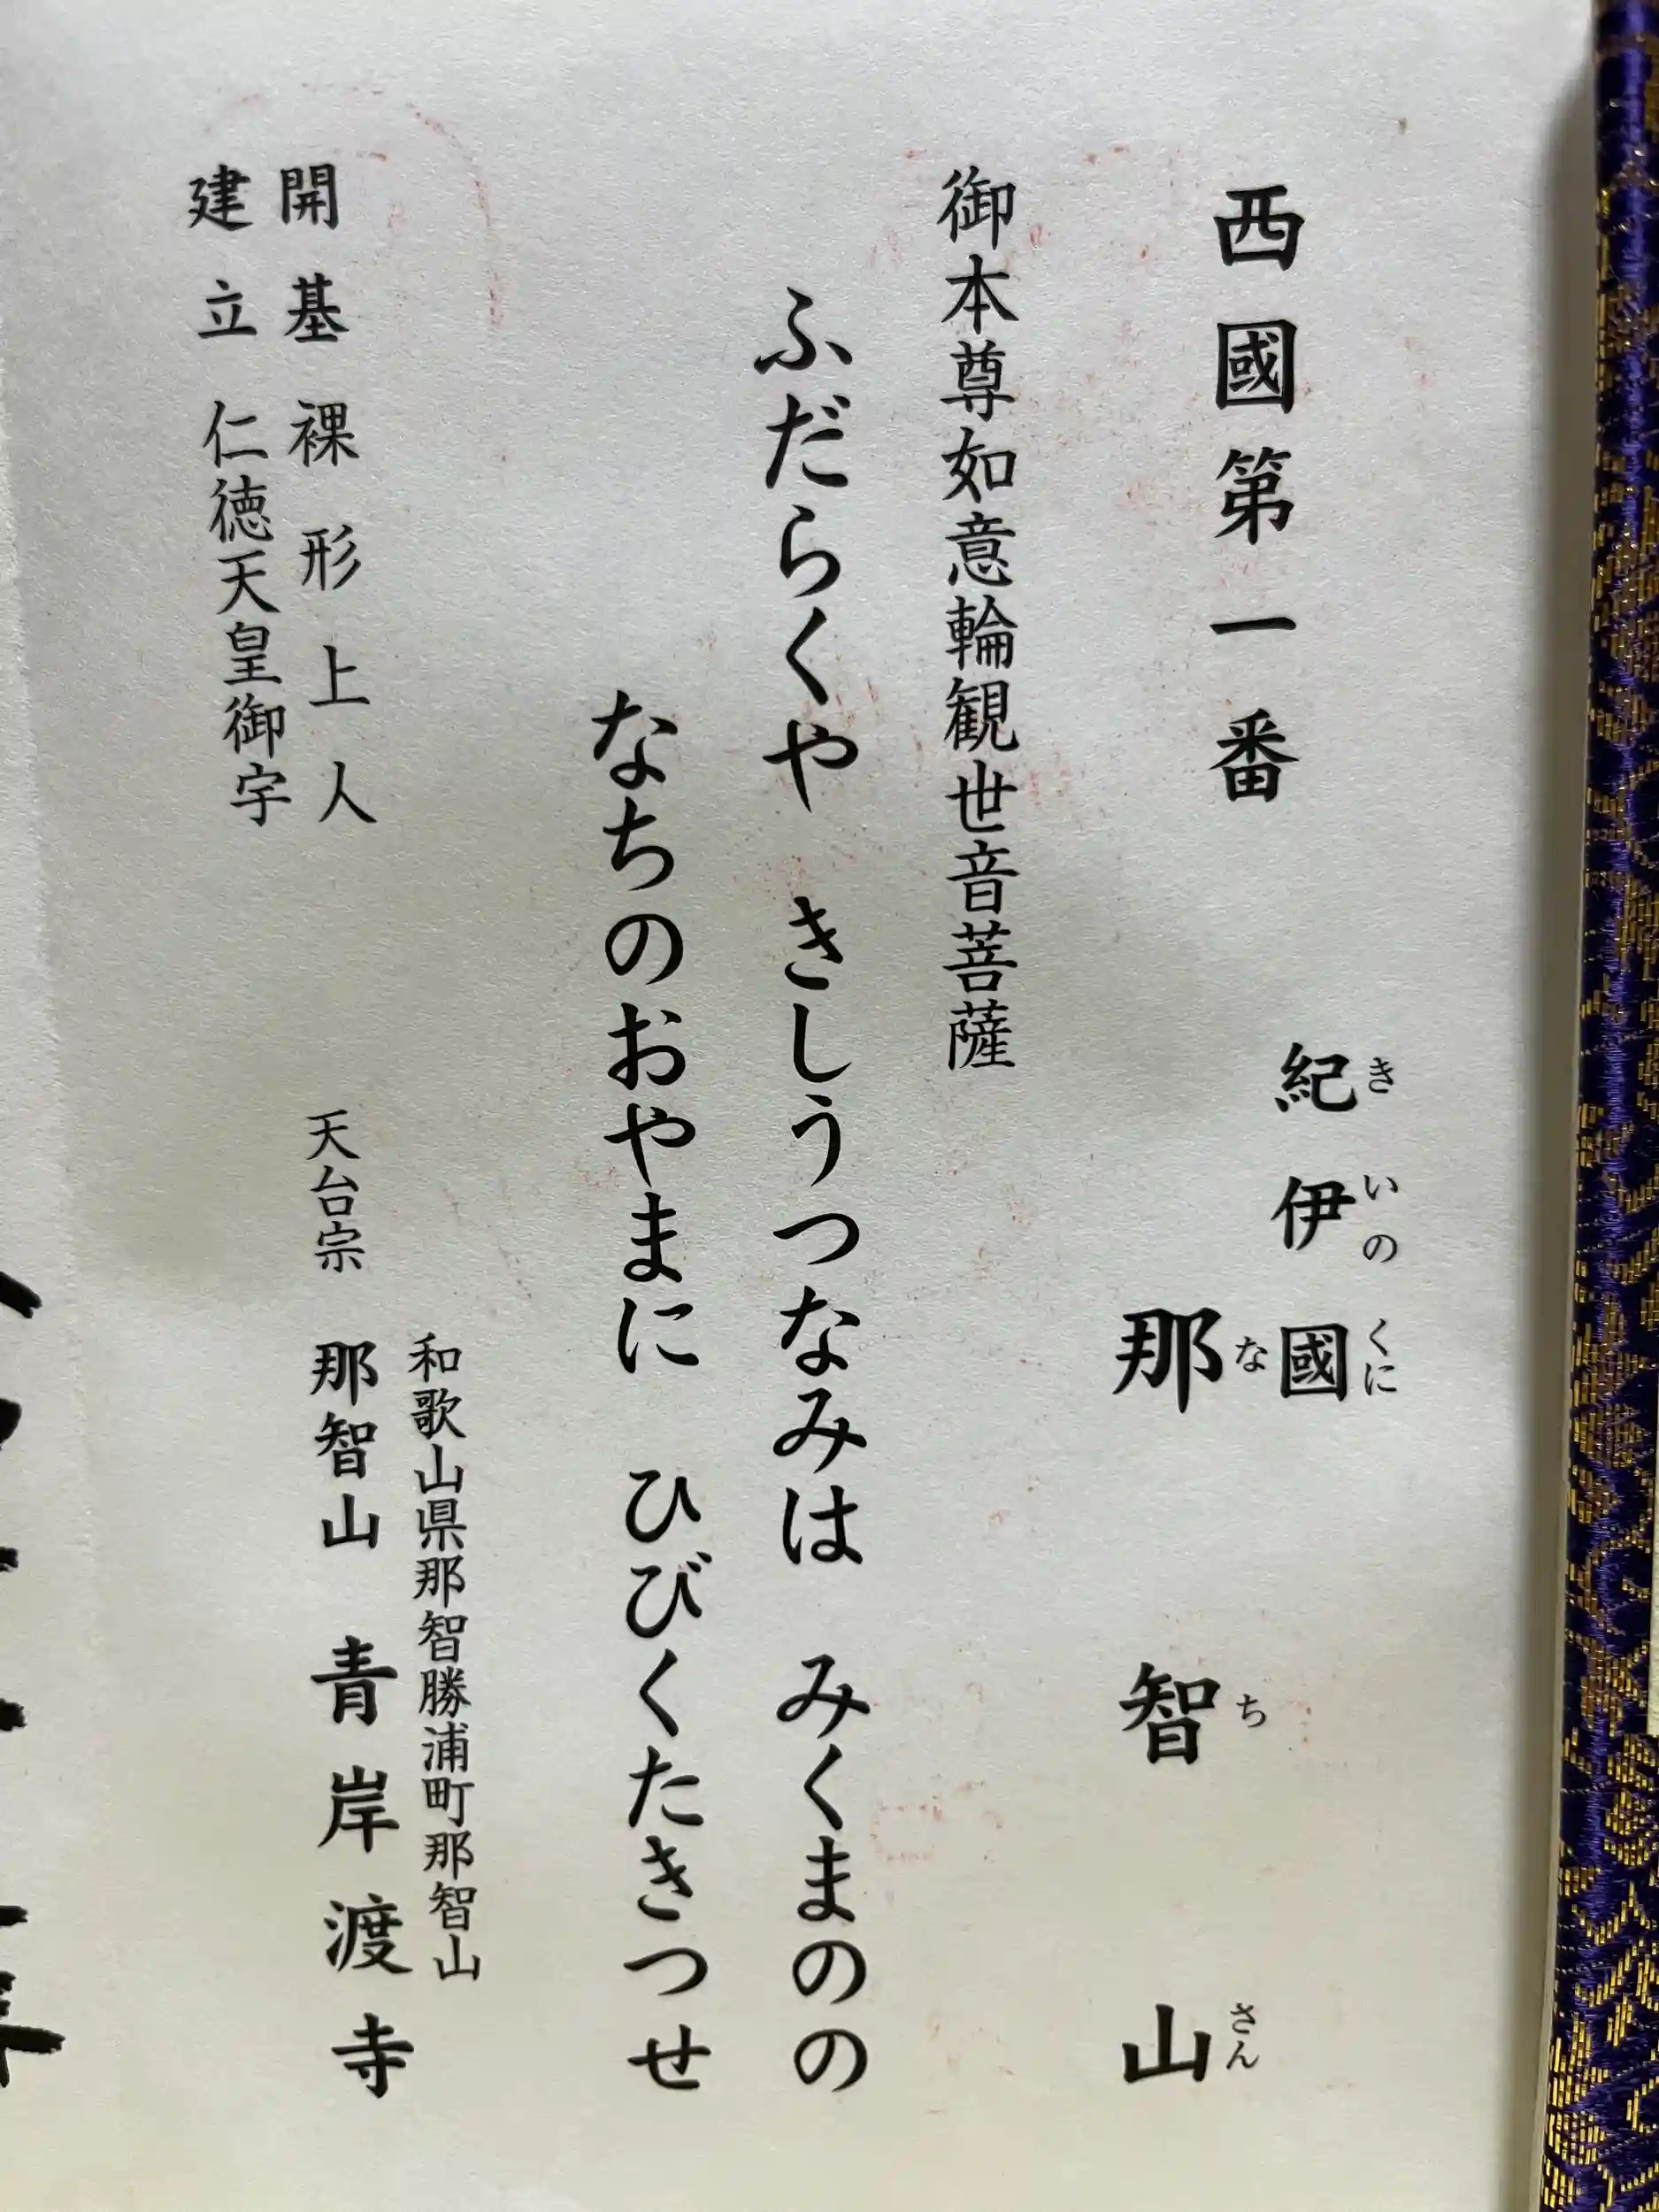 西國第一番
紀伊國
きいのくに
那智山
なちさん
御本尊如意輪観世音菩薩
ふだらくや きしうつなみは みくまのの
なちのおやまに ひびくたきつせ
開基 裸形上人
建立 仁徳天皇御宇
和歌山県那智勝浦町那智山
天台宗 那智山 青岸渡寺